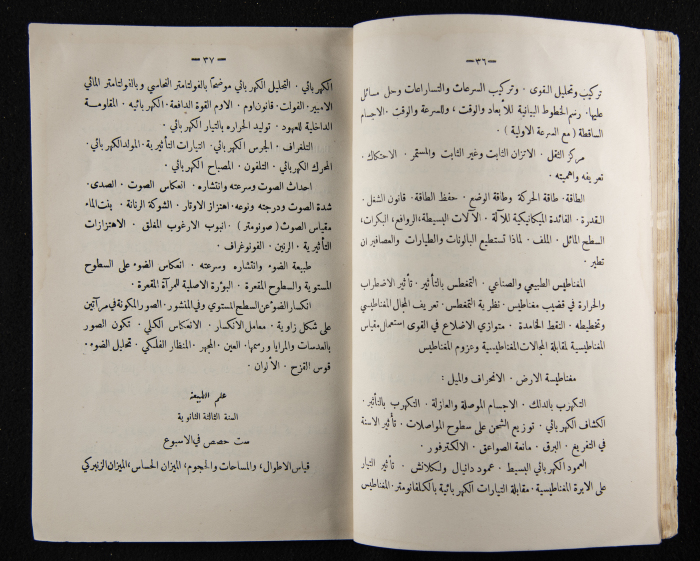 — ٣٦ —
تركيب وتحليل القوى . وتركيب السرعات والتساراعات وحل مسائل
عليها . رسم الخطوط البيانية للأبعاد والوقت ، وللسرعة والوقت . الاجسام
الساقطة ( مع السرعة الاولية ) .
مركز الثقل . الاتزان الثابت وغير الثابت والمستمر . الاحتكاك .
تعريفه واهميته .
الطاقة . طاقة الحركة وطاقة الوضع . حفظ الطاقة . قانون الشغل .
القدرة . الفائدة الميكانيكية للآلة . الآلات البسيطة، الروافع، البكرات،
السطح المائل . الملف . لماذا تستطيع البالونات والطيارات والعصافير ان
تطير .
المغناطيس الطبيعي والصناعي . التمغطس بالتأثير . تأثير الاضطراب
والحرارة في قضيب مغناطيس . نظرية التمغطس . تعريف المجال المغناطيسي
وتخطيطه . النقط الخامدة . متوازي الاضلاع في القوى إستعمال مقياس
المغناطيسية لمقابلة المجالات المغناطيسية وعزوم المغناطيس
مغناطيسة الارض . الانحراف والميل :
التكهرب بالدلك . الاجسام الموصلة والعازلة . التكهرب بالتأثير .
الكشاف الكهربائي . توزيع الشحن على سطوح المواصلات . تأثير الاسنة
في التفريغ . البرق . مانعة الصواعق . الالكترفور .
العمود الكهربائي البسيط . عمود دانيال ولكلانش . تأثير التيار
على الابرة المغناطيسية . مقابلة التيارات الكهربائية بالكلفانومتر. المغناطيس
— ٣٧ —
الكهربائي . التحليل الكهربائي موضحاً بالفولتامتر النحاسي وبالفولتامتر المائي
الامبير . الفولت . قانون اوم . الاوم القوة الدافعة . الكهربائيه . المقاومة
الداخلية للعهود . توليد الحراره بالتيار الكهربائي .
التلغراف . الجرس الكهربائي . التيارات التأثيرية . المولد الكهربائي .
المحرك الكهربائي . التلفون . المصباح الكهربائي .
احداث الصوت وسرعته وانتشاره . انعكاس الصوت . الصدى .
شدة الصوت ودرجته ونوعه . اهتزاز الاوتار . الشوكة الرنانة . بنت الماء
مقياس الصوت ( صونومتر ) . انبوب الارغوب المغلق . الاهتزازات
التأثيرية . الرنين . الفونوغراف .
طبيعة الضوء وانتشاره وسرعته . انعكاس الضوء على السطوح
المستوية والسطوح المقعرة . البؤرة الاصلية للمرآة المقعرة .
انكسار الضوء عن السطح المستوي وفي المنشور . الصور المكونة في مرآتين
على شكل زاوية . معامل الانكسار . الانعكاس الكلي . تكون الصور
بالعدسات والمرايا ورسمها . العين . المجهر . المنظار الفلكي . تحليل الضوء .
قوس القزح . الألوان .
علم الطبيعة
السنة الثالثة الثانوية
ست حصص في الاسبوع
قياس الاطوال، والمساحات والحجوم، الميزان الحساس، الميزان الزنبركي